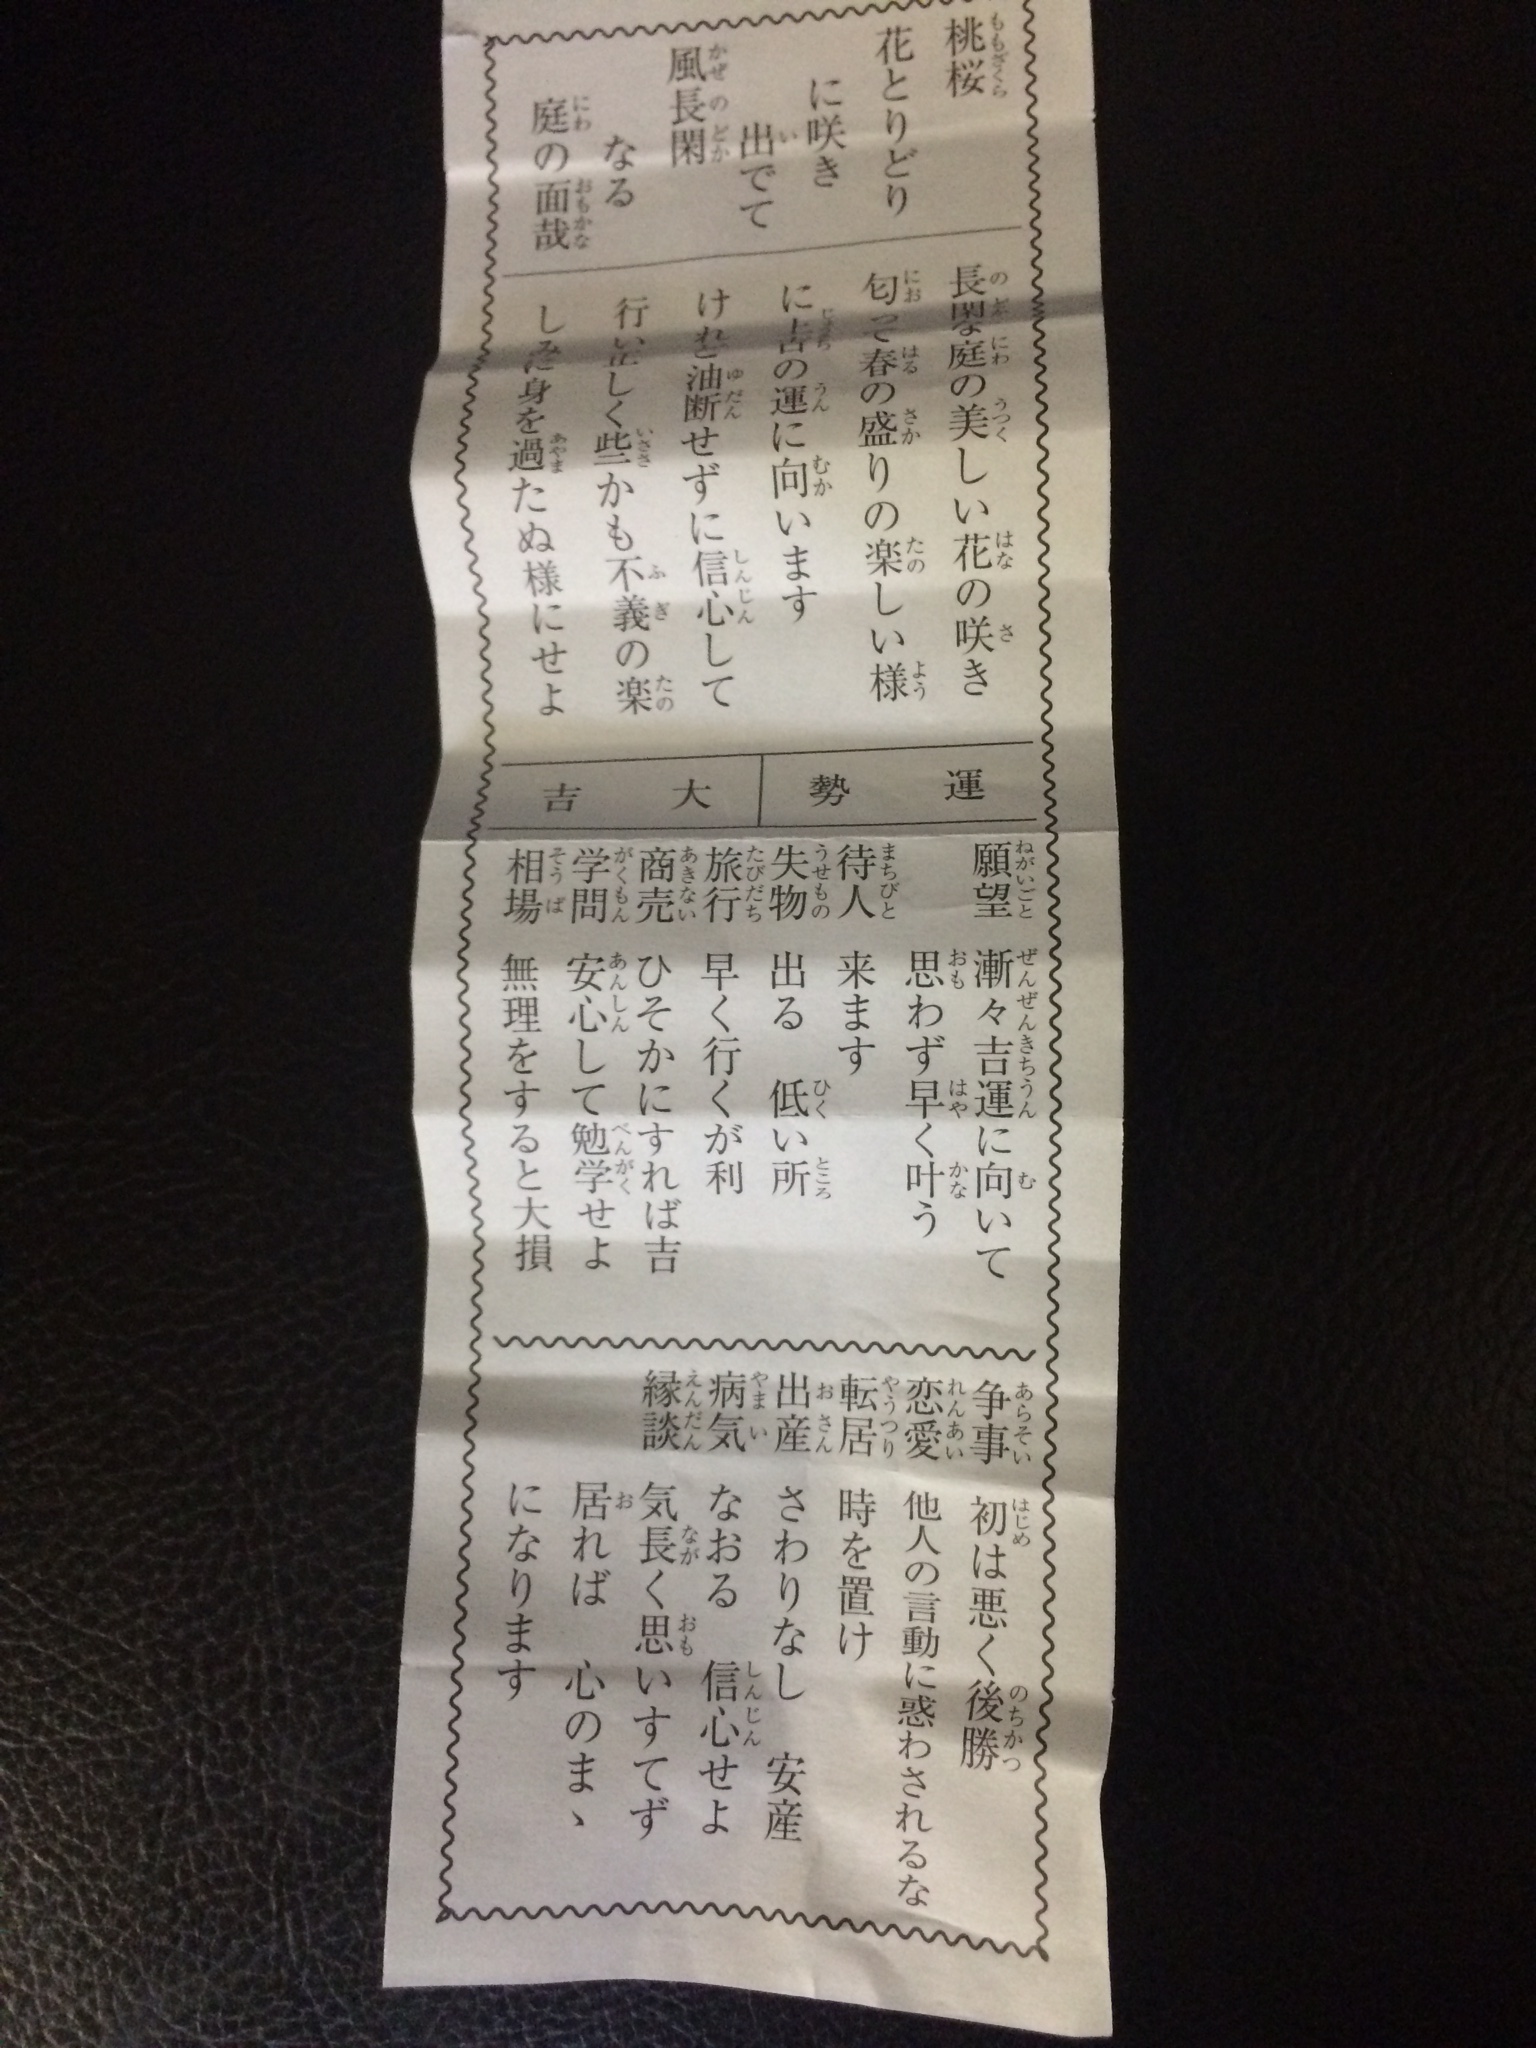 桃桜
花とりどり
に咲き
出でて
風長閑
なる
庭の面哉
長閑な庭の美しい花の咲き
匂って春の盛りの楽しい様
に上吉の運に向います
けれど油断せずに信心して
行い正しく些かも不義の楽
しみに身を過たぬ様にせよ
運勢 大吉
願望 漸々吉運に向いて
思わず早く叶う
待人 来ます
失物 出る 低い所
旅行 早く行くが利
商売 ひそかにすれば吉
学問 安心して勉学せよ
相場 無理をすると大損
争事 初は悪く後勝
恋愛 他人の言動に惑わされるな
転居 時を置け
出産 さわりなし 安産
病気 なおる 信心せよ
縁談 気長く思いすてず
居れば 心のまゝ
になります